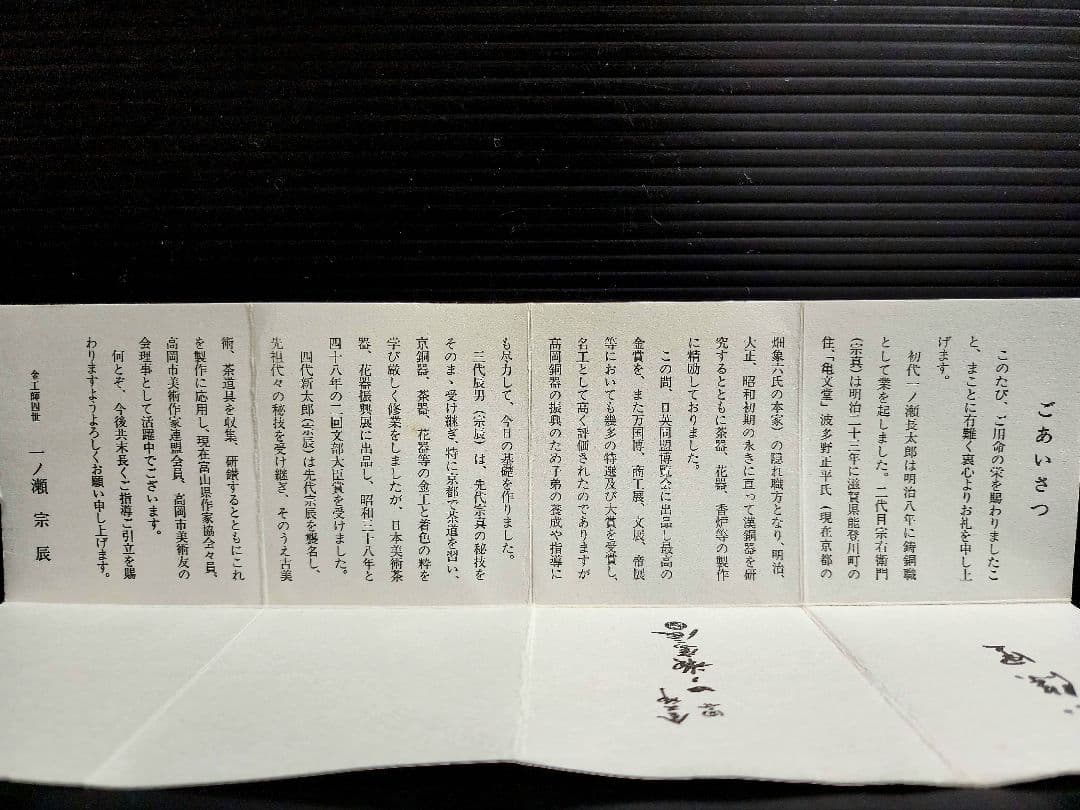 ごあいさつ
このたび、ご用命の栄を賜わりましたこ
と、まことに有難く衷心よりお礼を申し上
げます。
初代一ノ瀬長太郎は明治八年に鋳銅職
として業を起しました。二代目宗右衛門
(宗真)は明治二十三年に滋賀県能登川町の
住、「亀文堂」波多野正平氏(現在京都の
畑象六氏の本家)の隠れ職方となり、明治、
大正、昭和初期の永きに亘って漢銅器を研
究するとともに茶器、花器、香炉等の製作
に精励しておりました。
この間、日英同盟博覧会に出品し最高の
金賞を、また万国博、商工展、文展、帝展
等においても幾多の特選及び大賞を受賞し、
名工として高く評価されたのでありますが
高岡銅器の振興のため子弟の養成や指導に
も尽力して、今日の基礎を作りました。
三代辰男(宗辰)は、先代宗真の秘技を
そのまゝ受け継ぎ、特に京都で茶道を習い、
京銅器、茶器、花器等の金工と着色の粋を
学び厳しく修業をしましたが、日本美術茶
器、花器振興展に出品し、昭和三十八年と
四十八年の二回文部大臣賞を受けました。
四代新太郎(宗辰)は先代宗辰を襲名し、
先祖代々の秘技を受け継ぎ、そのうえ古美
術、茶道具を収集、研鑚するとともにこれ
を製作に応用し、現在富山県作家協会々員、
高岡市美術作家連盟会員、高岡市美術友の
会理事として活躍中でございます。
何とぞ、今後共末長くご指導ご引立を賜
わりますようよろしくお願い申し上げます。
金工師四世
一ノ瀬宗辰